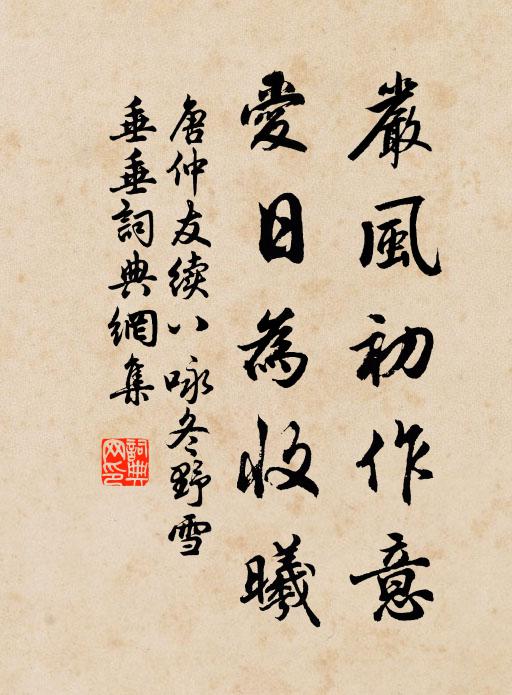 嚴風初作意
愛日為收曦
唐仲友續八咏冬野雪
垂垂詞典網集
詞典網印